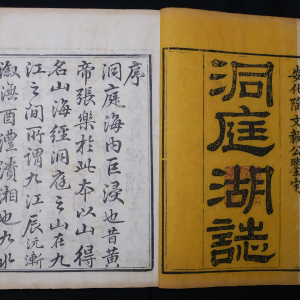 安化陶文毅公鑒定
洞庭湖誌
序
洞庭海內巨浸也昔黃
帝張樂於此本以山得
名山海經洞庭之山在九
江之間所謂九江辰沅漸
溆潕酉澧澬湘也九水